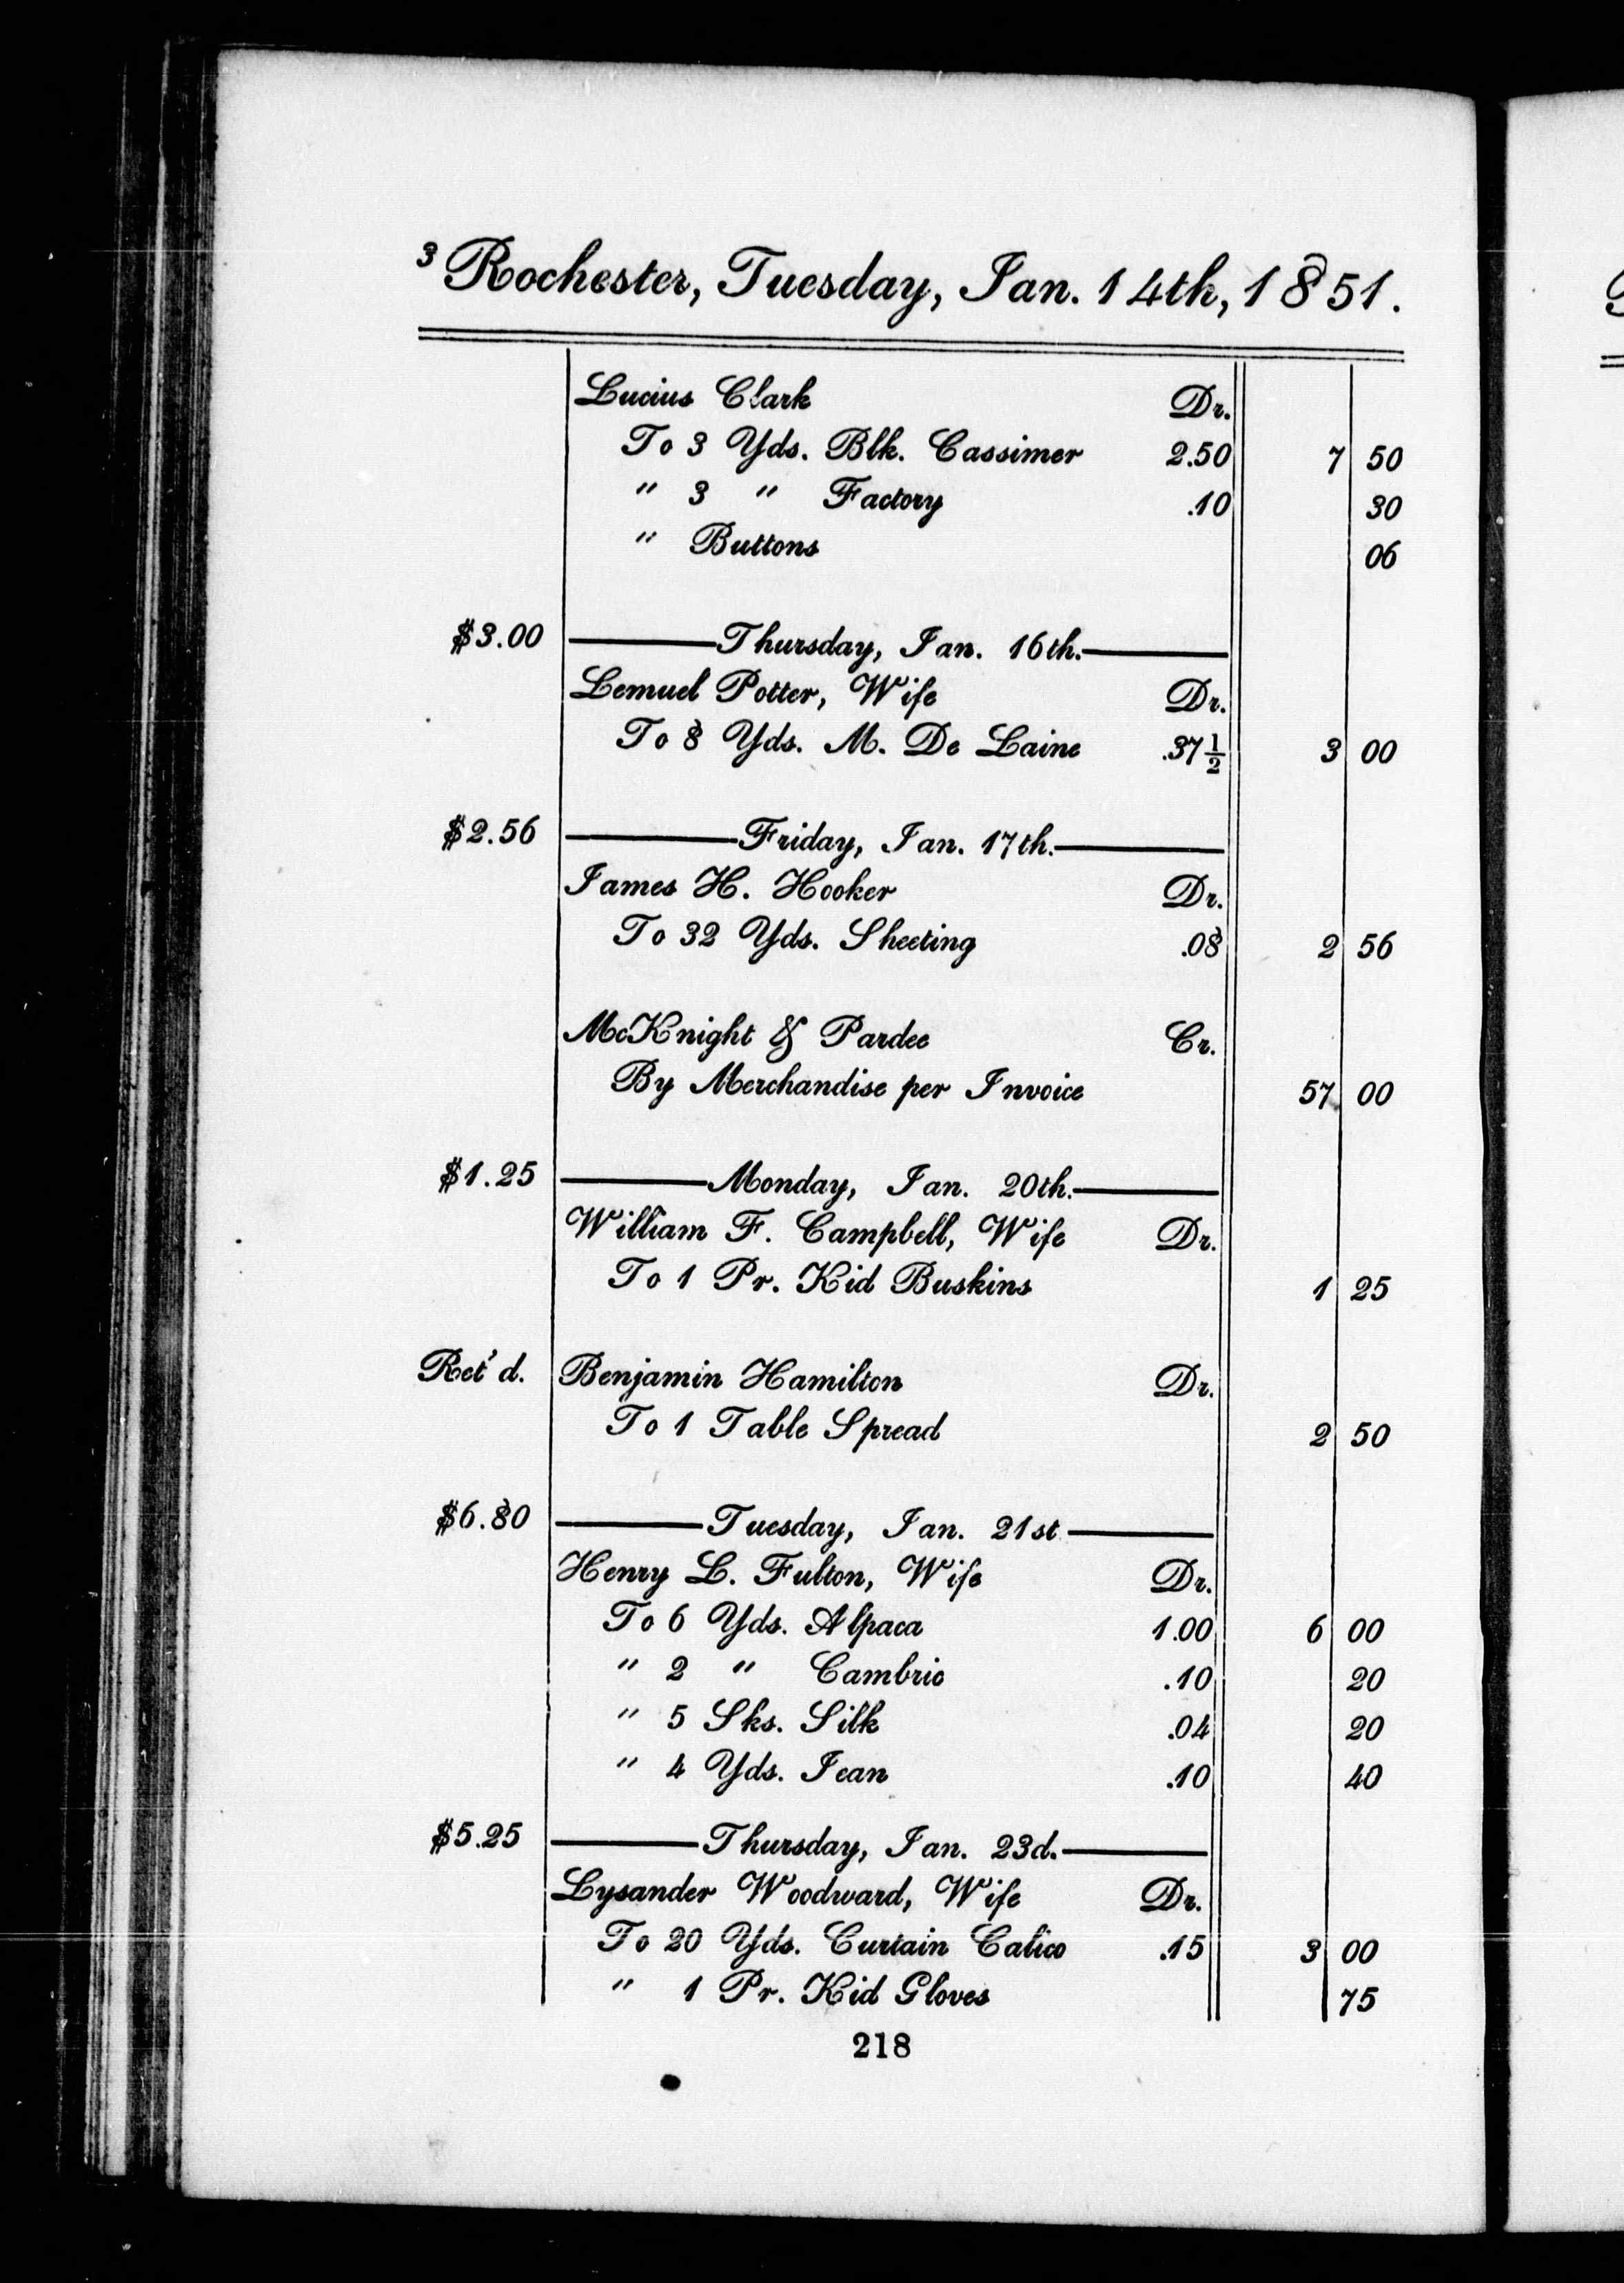 3 Rochester, Tuesday, Jan. 14th, 1851.
Lucius Clark Dr.
To 3 Yds. Blk. Cassimer 2.50 7 50
" 3 " Factory .10 30
" Buttons 06
$3.00 Thursday, Jan. 16th.
Lemuel Potter, Wife Dr.
To 8 Yds. M. De Laine .37 1/2 3 00
$2.56 Friday, Jan. 17th.
James H. Hooker Dr.
To 32 Yds. Sheeting .08 2 56
McKnight & Pardee Cr.
By Merchandise per Invoice 57 00
$1.25 Monday, Jan. 20th.
William F. Campbell, Wife Dr.
To 1 Pr. Kid Buskins 1 25
Ret'd. Benjamin Hamilton Dr.
To 1 Table Spread 2 50
$6.80 Tuesday, Jan. 21st
Henry L. Fulton, Wife Dr.
To 6 Yds. Alpaca 1.00 6 00
" 2 " Cambric .10 20
" 5 Sks. Silk .04 20
" 4 Yds. Jean .10 40
$5.25 Thursday, Jan. 23d.
Lysander Woodward, Wife Dr.
To 20 Yds. Curtain Calico .15 3 00
" 1 Pr. Kid Gloves 75
218